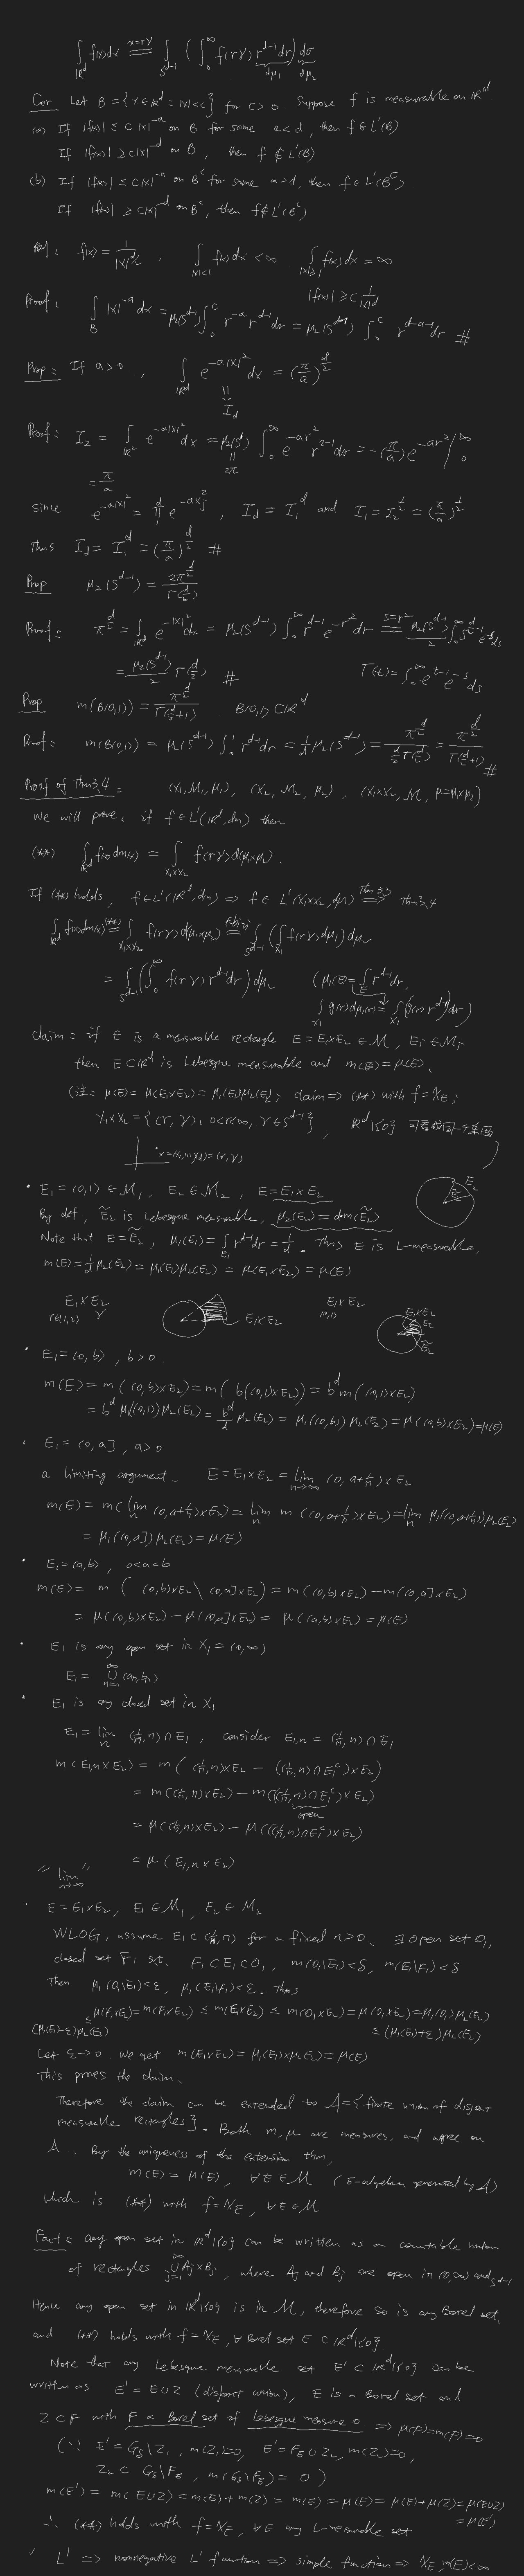 ∫_{ℝ^d} f(x)dx =^{x=rγ} ∫_{S^{d-1}} ( ∫_0^∞ f(rγ) r^{d-1}dr ) dσ
dμ₁ dμ₂
Cor Let B = {x∈ℝ^d : |x|<c} for c>0 Suppose f is measurable on ℝ^d
(a) If |f(x)| ≤ C|x|^{-a} on B for some a<d, then f∈L¹(B)
If |f(x)| ≥ C|x|^{-d} on B, then f∉L¹(B)
(b) If |f(x)| ≤ C|x|^{-a} on B^c for some a>d, then f∈L¹(B^c)
If |f(x)| ≥ C|x|^{-d} on B^c, then f∉L¹(B^c)
∫_{|x|<1} f(x)dx < ∞ ∫_{|x|≥1} f(x)dx = ∞
|f(x)| ≥ C 1/|x|^d
Proof: ∫_B |x|^{-a} dx = μ₂(S^{d-1}) ∫_0^c r^{-a} r^{d-1}dr = μ₂(S^{d-1}) ∫_0^c r^{d-a-1}dr #
Prop: If a>0, ∫_{ℝ^d} e^{-a|x|²} dx = (π/a)^{d/2}
I_d
Proof: I₂ = ∫_{ℝ²} e^{-a|x|²}dx = μ₂(S¹) ∫_0^∞ e^{-ar²} r^{2-1}dr = -(π/a) e^{-ar²} |_0^∞
2π
= π/a
since e^{-a|x|²} = ∏_1^d e^{-ax_j²}, I_d = I₁^d and I₁ = I₂^{1/2} = (π/a)^{1/2}
Thus I_d = I₁^d = (π/a)^{d/2} #
Prop μ₂(S^{d-1}) = 2π^{d/2}/Γ(d/2)
Proof: π^{d/2} = ∫_{ℝ^d} e^{-|x|²}dx = μ₂(S^{d-1}) ∫_0^∞ r^{d-1} e^{-r²}dr =^{s=r²} μ₂(S^{d-1})/2 ∫_0^∞ s^{d/2-1} e^{-s}ds
= μ₂(S^{d-1})/2 Γ(d/2) # Γ(t) = ∫_0^∞ s^{t-1} e^{-s} ds
Prop m(B(0,1)) = π^{d/2}/Γ(d/2+1) B(0,1)⊂ℝ^d
Proof: m(B(0,1)) = μ₂(S^{d-1}) ∫_0^1 r^{d-1}dr = 1/d μ₂(S^{d-1}) = π^{d/2}/(d/2 Γ(d/2)) = π^{d/2}/Γ(d/2+1) #
Proof of Thm3.4: (X₁, M₁, μ₁), (X₂, M₂, μ₂), (X₁×X₂, M, μ=μ₁×μ₂)
We will prove: if f∈L¹(ℝ^d, dm) then
(**) ∫_{ℝ^d} f(x)dm(x) = ∫_{X₁×X₂} f(rγ)d(μ₁×μ₂).
If (**) holds, f∈L¹(ℝ^d,dm) ⇒ f∈L¹(X₁×X₂,dμ) ⇒^{Thm3.3} Thm3.4
∫_{ℝ^d} f(x)dm(x) =^{(**)} ∫_{X₁×X₂} f(rγ)d(μ₁×μ₂) =^{Fubini} ∫_{S^{d-1}} (∫_{X₁} f(rγ)dμ₁) dμ₂
= ∫_{S^{d-1}} (∫_0^∞ f(rγ) r^{d-1}dr) dμ₂ (μ₁(E)=∫_E r^{d-1}dr,
∫_{X₁} g(r)dμ₁(r) = ∫_{X₁} (g(r) r^{d-1})dr)
claim: if E is a measurable rectangle E=E₁×E₂∈M, E_i∈M_i,
then E⊂ℝ^d is Lebesgue measurable and m(E)=μ(E).
(注: μ(E)=μ(E₁×E₂)=μ₁(E₁)μ₂(E₂); claim⇒(**) with f=χ_E;
X₁×X₂={(r,γ), 0<r<∞, γ∈S^{d-1}}, ℝ^d\{0} 可看成同一个東西
• E₁=(0,1)∈M₁, E₂∈M₂, E=E₁×E₂
E₂
By def, Ẽ₂ is Lebesgue measurable, μ₂(E₂)=d·m(Ẽ₂)
Note that E=Ẽ₂, μ₁(E₁)=∫_{E₁} r^{d-1}dr=1/d. Thus E is L-measurable,
m(E)=1/d μ₂(E₂)=μ₁(E₁)μ₂(E₂)=μ(E₁×E₂)=μ(E)
E₁×E₂ E₁×E₂ E₁×E₂
r∈(1,2) γ E₁×E₂ (0,1) E₂
Ẽ₂
• E₁=(0,b), b>0
m(E)=m((0,b)×E₂)=m(b((0,1)×E₂))=b^d m((0,1)×E₂)
=b^d μ₁((0,1))μ₂(E₂)=b^d/d μ₂(E₂)=μ₁((0,b))μ₂(E₂)=μ((0,b)×E₂)=μ(E)
• E₁=(0,a], a>0
a limiting argument. E=E₁×E₂=lim_{n→∞} (0,a+1/n)×E₂
m(E)=m(lim_n (0,a+1/n)×E₂)=lim_n m((0,a+1/n)×E₂)=lim_n μ₁((0,a+1/n))μ₂(E₂)
=μ₁((0,a])μ₂(E₂)=μ(E)
• E₁=(a,b), 0<a<b
m(E)=m((0,b)×E₂\(0,a]×E₂)=m((0,b)×E₂)-m((0,a]×E₂)
=μ((0,b)×E₂)-μ((0,a]×E₂)=μ((a,b)×E₂)=μ(E)
• E₁ is any open set in X₁=(0,∞)
E₁=⋃_{n=1}^∞ (a_n,b_n)
• E₁ is any closed set in X₁
E₁=lim_n (1/n,n)∩E₁, consider E_{1,n}=(1/n,n)∩E₁
m(E_{1,n}×E₂)=m((1/n,n)×E₂-((1/n,n)∩E₁^c)×E₂)
=m((1/n,n)×E₂)-m(((1/n,n)∩E₁^c)×E₂)
open
=μ((1/n,n)×E₂)-μ(((1/n,n)∩E₁^c)×E₂)
=μ(E_{1,n}×E₂)
"lim_{n→∞}"
• E=E₁×E₂, E₁∈M₁, E₂∈M₂
WLOG, assume E₁⊂(1/n,n) for a fixed n>0. ∃ open set O₁,
closed set F₁ s.t. F₁⊂E₁⊂O₁, m(O₁\E₁)<δ, m(E₁\F₁)<δ
Then μ₁(O₁\E₁)<ε, μ₁(E₁\F₁)<ε. Thus
μ(F₁×E₂)=m(F₁×E₂) ≤ m(E₁×E₂) ≤ m(O₁×E₂)=μ(O₁×E₂)=μ₁(O₁)μ₂(E₂)
(μ₁(E₁)-ε)μ₂(E₂) ≤ ≤ (μ₁(E₁)+ε)μ₂(E₂)
Let ε→0. We get m(E₁×E₂)=μ₁(E₁)×μ₂(E₂)=μ(E)
This proves the claim.
Therefore the claim can be extended to A={finite union of disjoint
measurable rectangles}. Both m, μ are measures, and agree on
A. By the uniqueness of the extension thm,
m(E)=μ(E), ∀E∈M (σ-algebra generated by A)
which is (**) with f=χ_E, ∀E∈M
Fact: any open set in ℝ^d\{0} can be written as a countable union
of rectangles ⋃_{j=1}^∞ A_j×B_j, where A_j and B_j are open in (0,∞) and S^{d-1}
Hence any open set in ℝ^d\{0} is in M, therefore so is any Borel set,
and (**) holds with f=χ_E, ∀ Borel set E⊂ℝ^d\{0}
Note that any Lebesgue measurable set E'⊂ℝ^d\{0} can be
written as E'=E∪Z (disjoint union), E is a Borel set and
Z⊂F with F a Borel set of Lebesgue measure 0 ⇒ μ(F)=m(F)=0
(∵ E'=G_δ\Z₁, m(Z₁)=0, E'=F_σ∪Z₂, m(Z₂)=0,
Z₂⊂G_δ\F_σ, m(G_δ\F_σ)=0)
m(E')=m(E∪Z)=m(E)+m(Z)=m(E)=μ(E)=μ(E)+μ(Z)=μ(E∪Z)
=μ(E')
∴ (**) holds with f=χ_E, ∀E any L-measurable set
L¹ ⇒ nonnegative L¹ function ⇒ simple function ⇒ χ_E, m(E)<∞